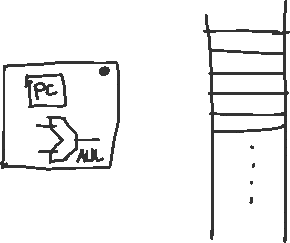 PC
AUL